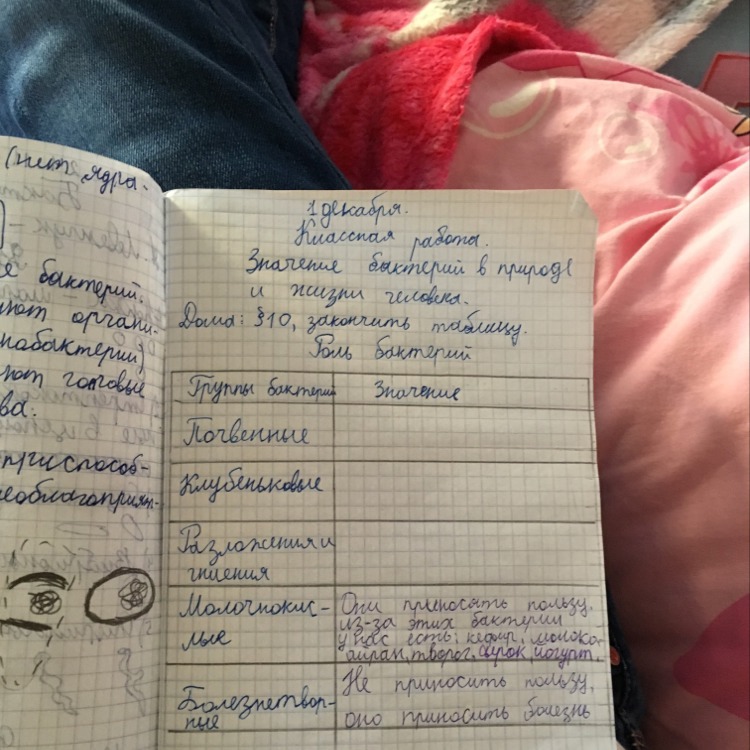 (нет ядра.
е бактерий.
ют органи-
набактерии)
ют готовые
ва.
приспособ-
еблагоприят-
1 декабря.
Классная работа.
Значение бактерий в природе
и жизни человека.
Дома: §10, закончить таблицу.
Роль бактерий
Группы бактерий Значение
Почвенные
Клубеньковые
Разложения и
гниения
Молочнокис-
лые
Они приносять пользу.
из-за этих бактерии
у нас есть: кефир, молоко
айран, творог, сырок, йогурт.
Болезнетвор-
ные
Не приносить пользу,
оно приносить болезнь